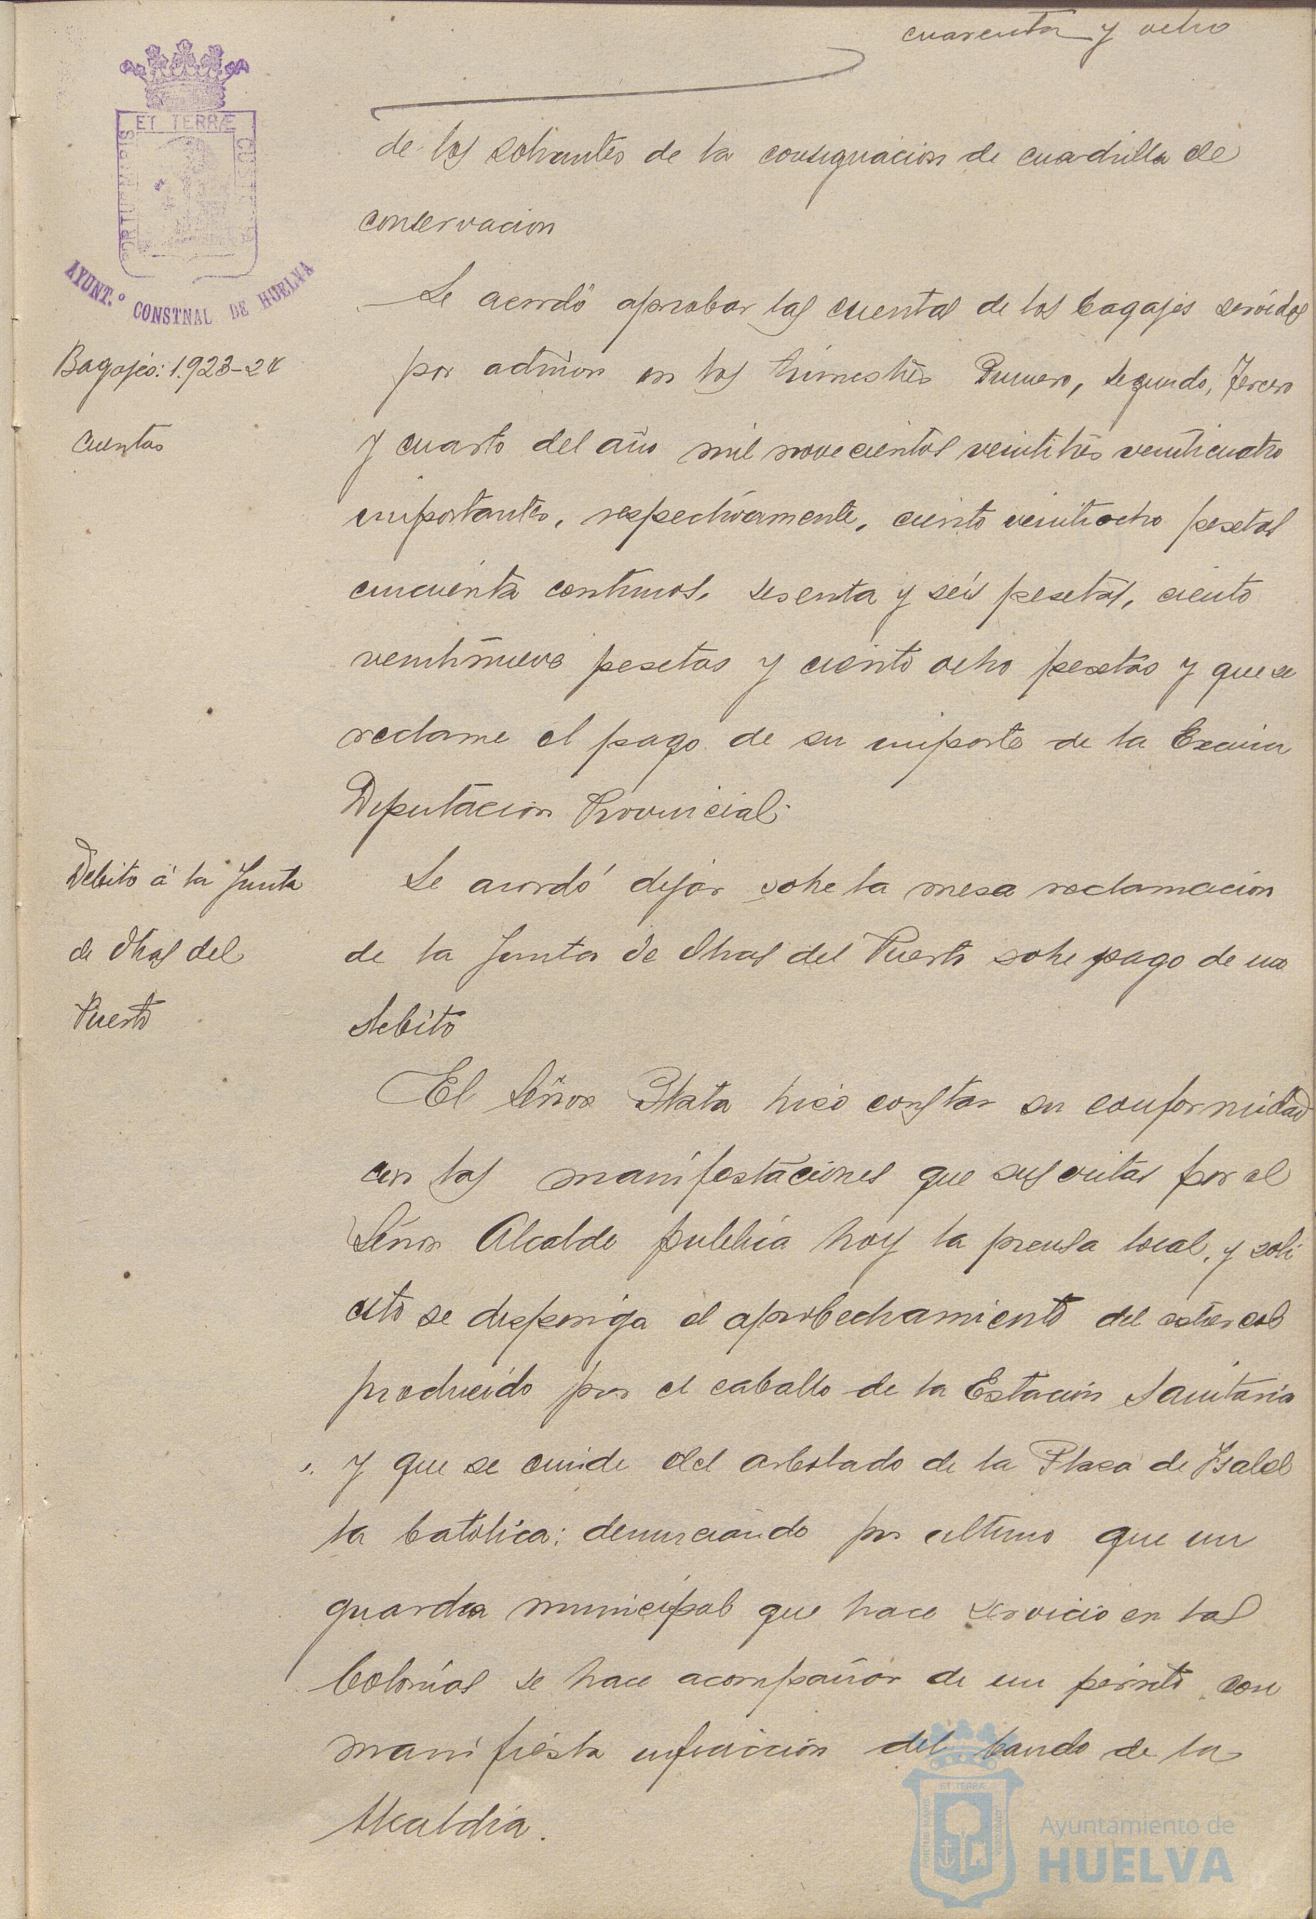 cuarenta y ocho
ET TERRÆ
AYUNT.º CONSTNAL DE HUELVA
de los sobrantes de la consignacion de cuadrilla de
conservacion
Bagajes: 1.923-24
Cuentas
Se acordó aprobar las cuentas de los bagajes servidos
por admon en los trimestres Primero, segundo, Tercero
y cuarto del año mil novecientos veintitres veinticuatro
importantes, respectivamente, ciento veintiocho pesetas
cincuenta centimos, sesenta y seis pesetas, ciento
veintinueve pesetas y ciento ocho pesetas y que se
reclame el pago de su importe de la Excma
Diputacion Provincial.
Debito á la Junta
de Obras del
Puerto
Se acordó dejar sobre la mesa reclamacion
de la Junta de Obras del Puerto sobre pago de un
debito
El Señor Plata hizo constar su conformidad
con las manifestaciones que suscritas por el
Señor Alcalde publica hoy la prensa local, y soli
citó se disponga el aprobechamiento del estiercol
producido por el caballo de la Estación Sanitaria
y que se cuide del arbolado de la Plaza de Isabel
la Católica: denunciando por ultimo que un
guardia municipal que hace servicio en las
Colonias se hace acompañar de un perrito con
manifiesta infraccion del bando de la
Alcaldia.
ET TERRÆ
Ayuntamiento de
HUELVA